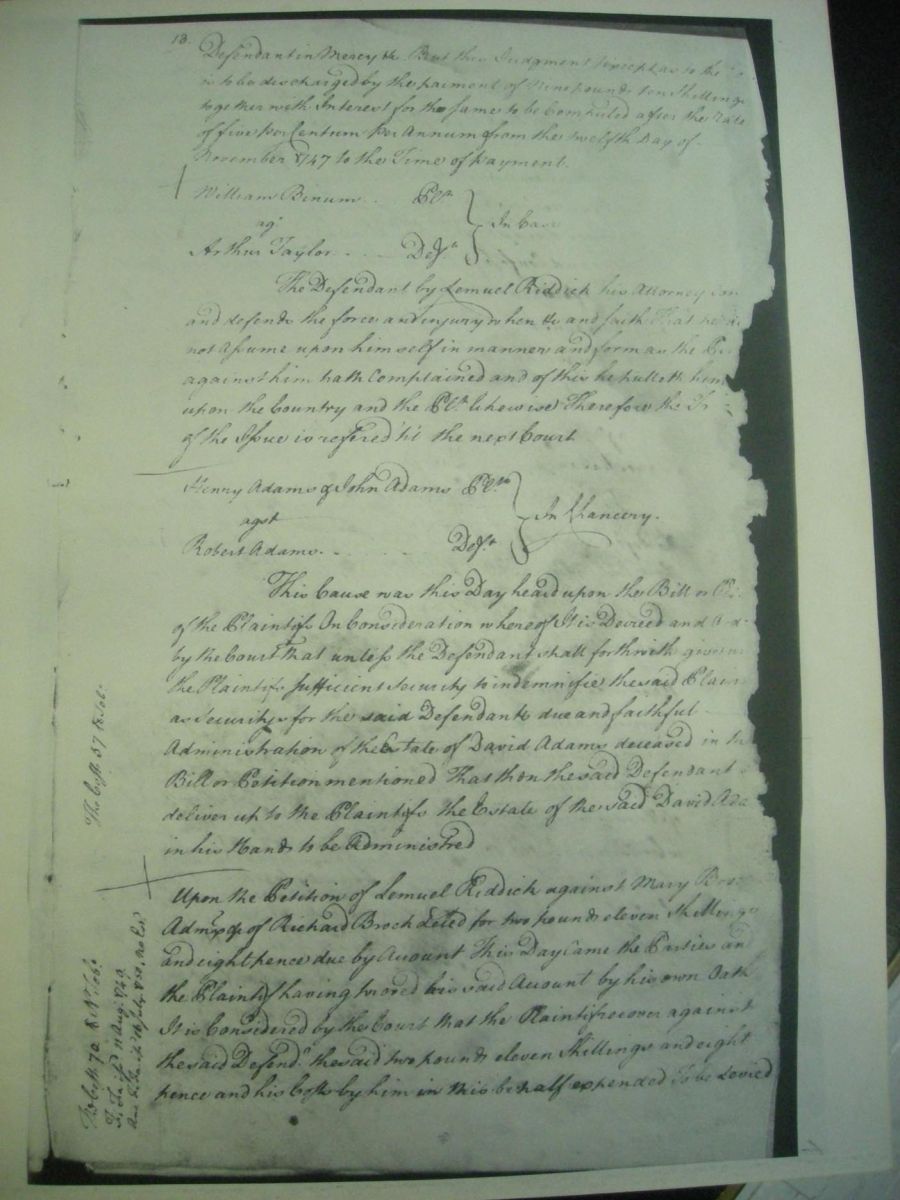 18.
Defendant in Mercy &c. But this Judgment Except as to the
is to be discharged by the paiment of Nine pounds ten Shillings
together with Interest for the same to be Computed after the Rate
of five per Centum per Annum from the twelfth Day of
November 1747 to the Time of payment.
William Binum Plt.
agt. In Case
Arthur Taylor Deft.
The Defendant by Lemuel Riddick his Attorney
and defends the force and injury when &c and saith That he
not assume upon himself in manner and form as the
against him hath Complained and of this he putteth him
upon the Country and the Plt. likewise Therefore the
of the Issue is refered 'til the next Court
Henry Adams & John Adams Plts.
agst In Chancery.
Robert Adams. Deft.
This Cause was this Day heard upon the Bill or
of the Plaintifs On Consideration whereof It is Decreed and
by the Court That unless the Defendant shall forthwith give
the Plaintifs sufficient Security to indemnifie the said
as Securitys for the said Defendants due and faithful
Administration of the Estate of David Adams deceased in
Bill or Petition mentioned That then the said Defendant
deliver up to the Plaintifs the Estate of the said David
in his Hands to be Administred
Upon the Petition of Lemuel Riddick against Mary
Admx. of Richard Brock deced for two pounds eleven Shillings
and eight pence due by Account This Day Came the Parties
the Plaintif having proved his said Account by his own Oath
It is Considered by the Court that the Plaintif recover against
the said Defendt. the said two pounds eleven Shillings and eight
pence and his Costs by him in this behalf expended To be Levied